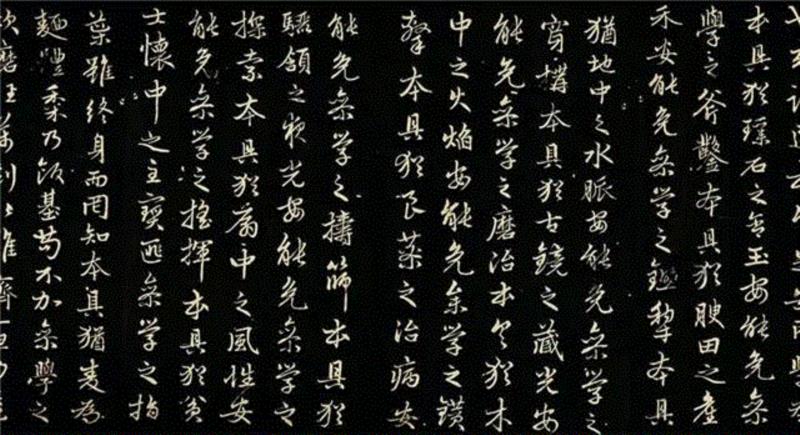 本具猶璞石之含玉安能免叅
學之斧鑿本具猶腴田之產
禾安能免叅学之鋤犁本具
猶地中之水脈安能免叅学之
穿 本具猶古鏡之藏光安
能免叅学之磨治本具猶木
中之火焰安能免叅学之鑽
本具猶良藥之治病安
能免叅学之擣篩本具猶
驪頷之夜光安能免叅学之
探索本具猶扇中之風性安
能免叅学之搖揮本具猶貧
士懷中之 寶匪叅学之指
雖終身而罔知本具猶麦为
麵 黍乃飯基苟不加叅學之